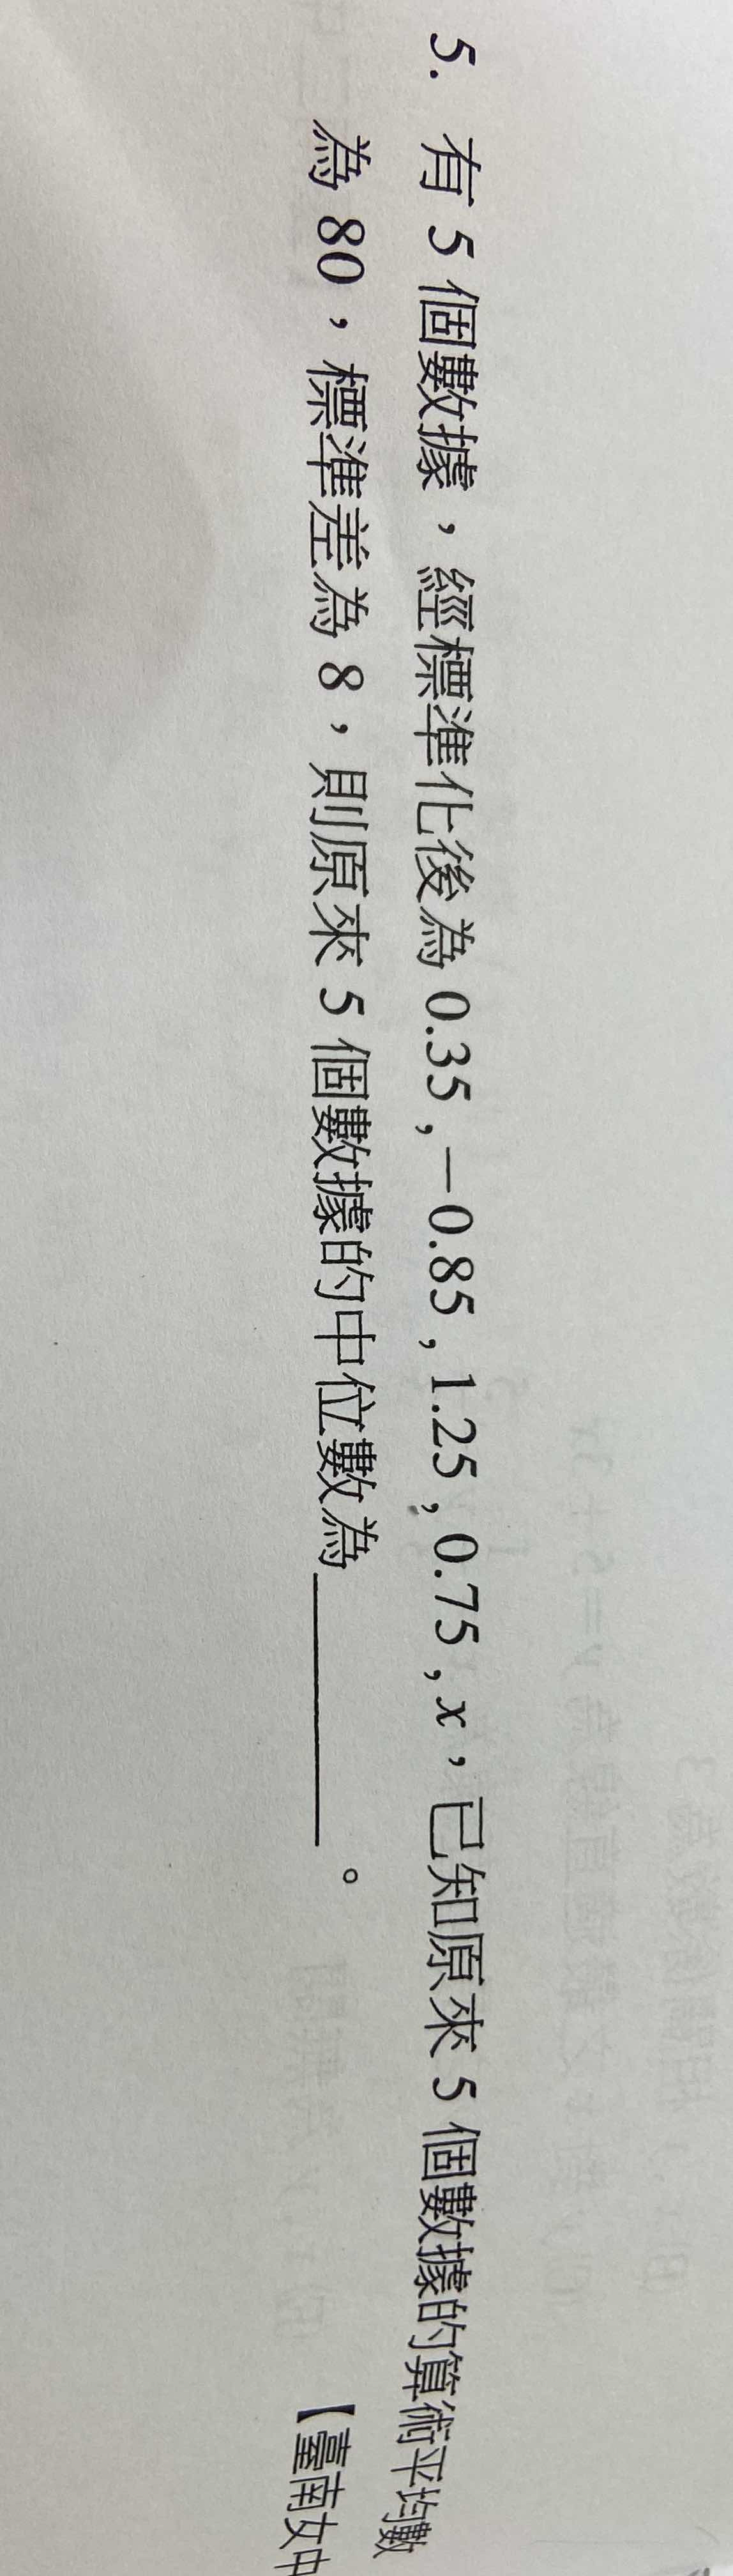 5. 有 5 個數據，經標準化後為 0.35 , −0.85 , 1.25 , 0.75 , x，已知原來 5 個數據的算術平均數
為 80，標準差為 8，則原來 5 個數據的中位數為________。
【臺南女中